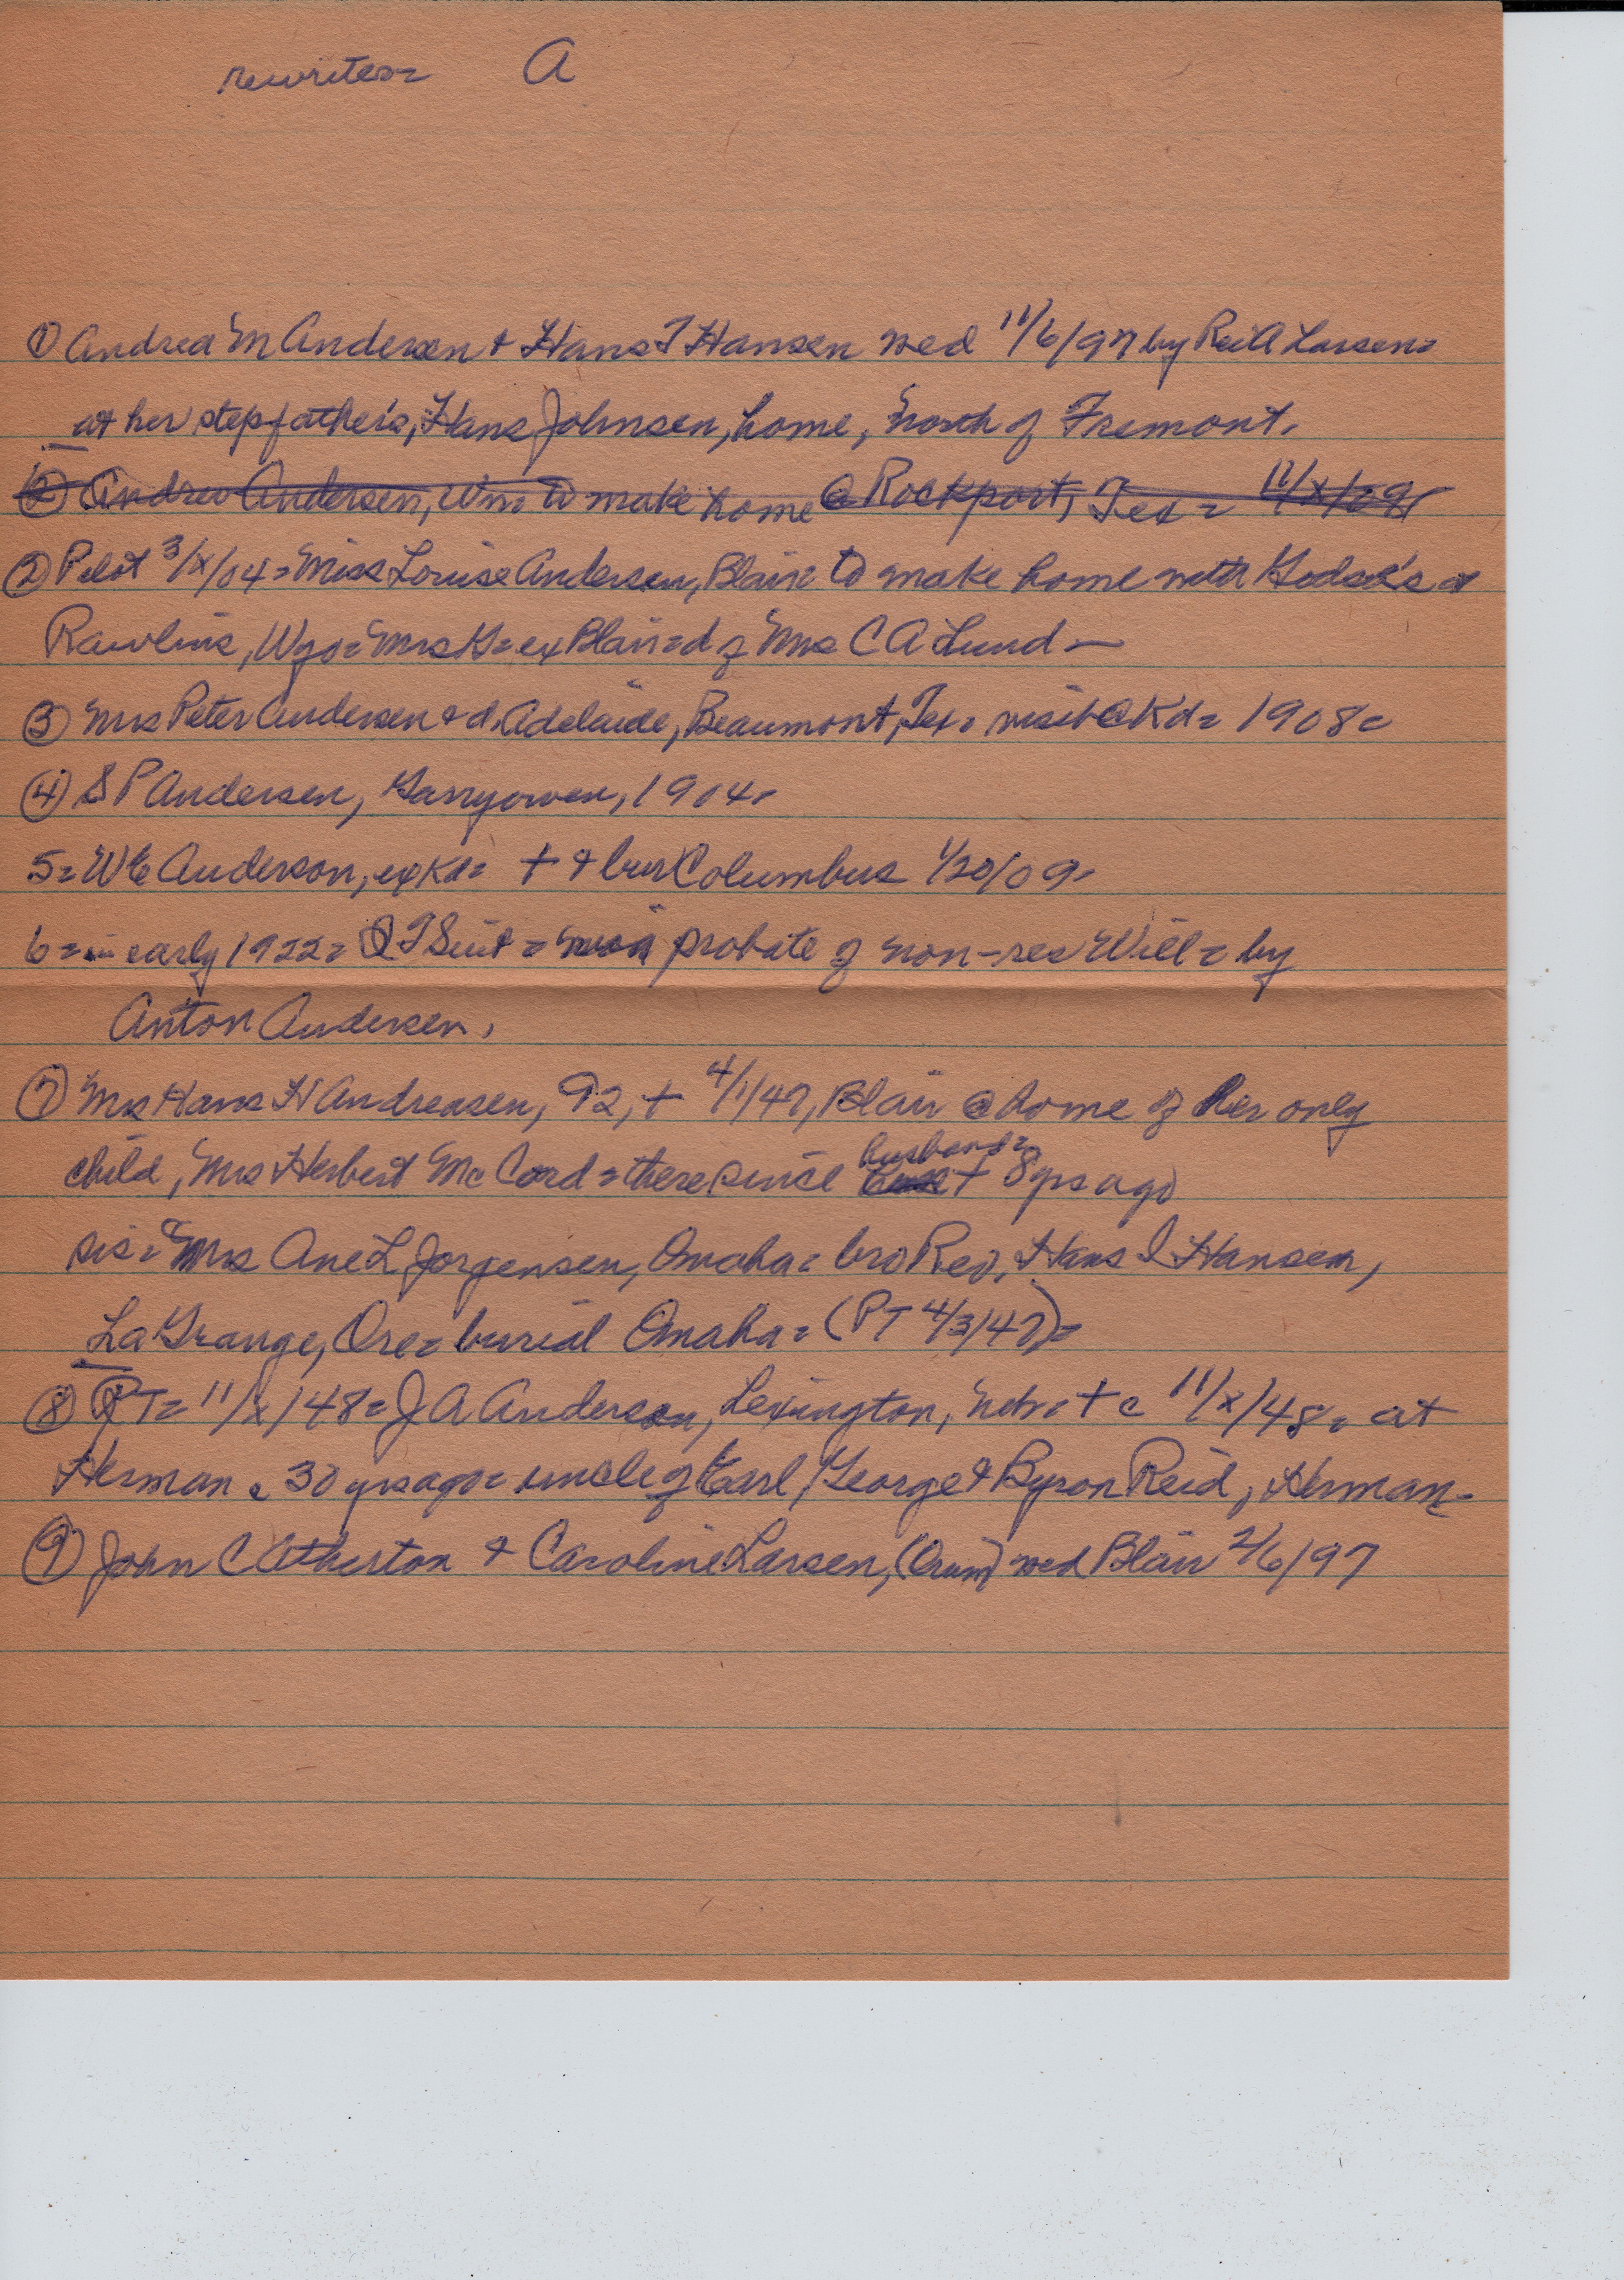 rewrites= A
① Andrea M Andersen + Hans T Hansen wed 11/6/97 by Rev A Larsen=
at her stepfather's, Hans Johnsen, home, north of Fremont.
② Andrew Andersen, Wm= to make home @ Rockport, Tex= 11/x/09
② Pilot 3/x/04= Miss Louise Andersen, Blair= to make home with at
Rawlins, Wyo= Mrs G= ex Blair= d of Mrs C A Lund—
③ Mrs Peter Andersen + d, Adelaide, Beaumont, Tex= visit @ Kd= 1908=
④ S P Andersen, Garryowen, 1904.
5= W E Anderson, ex Kd= † + bur Columbus 1/20/09.
6= in early 1922= Suit= probate of non-res Will= by
Anton Andersen.
⑦ Mrs Hans H Andreasen, 92, † 4/1/47, Blair @ home of her only
child, Mrs Herbert McCord= there since husband= † 8 yrs ago
sis= Mrs Ane L Jorgensen, Omaha= bro Rev. Hans I Hansen,
LaGrange, Ore= burial Omaha= (PT 4/3/47)=
⑧ PT= 11/x/48= J A Anderson, Lexington, Neb= † c 11/x/48= at
Herman c 30 yrs ago= uncle of Earl, George + Byron Reid, Herman-
⑨ John C Atherton + Caroline Larsen, (Orum) wed Blair 2/6/97